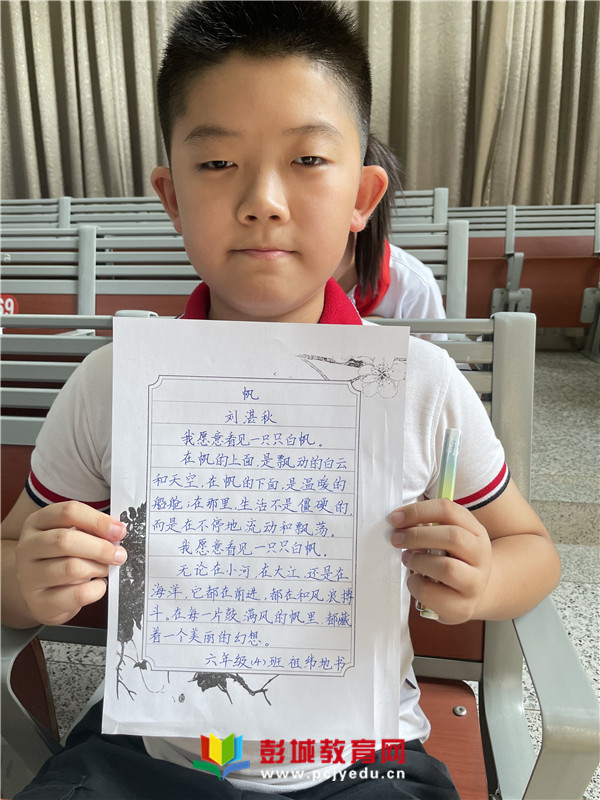 帆
刘湛秋
我愿意看见一只只白帆。
在帆的上面,是飘动的白云
和天空,在帆的下面,是温暖的
船舱;在那里,生活不是僵硬的,
而是在不停地流动和飘荡。
我愿意看见一只只白帆。
无论在小河,在大江,还是在
海洋,它都在前进,都在和风浪搏
斗。在每一片鼓满风的帆里,都藏
着一个美丽的幻想。
六年级(4)班 祖纬地书
69
彭城教育网
www.pcjyedu.cn